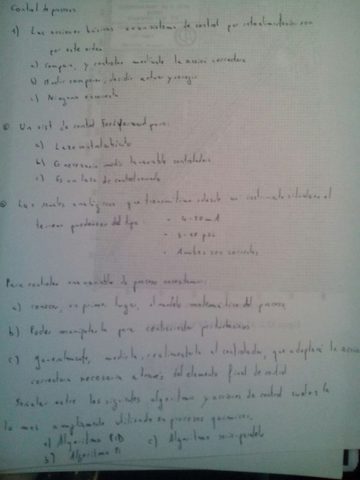 Control de procesos
1) Las acciones básicas en un sistema de control por retroalimentación son
por este orden
a) compara, y controlar mediante la acción correctora
b) Medir comparar, decidir actuar y corregir
c) Ninguna es correcta
Un sist de control Feedforward posee:
a) Lazo instalabierto
b) Es necesario medir la variable controlada
c) Es un lazo de control cerrado
Las señales analógicas que transmiten
terreno del tipo
- 4-20 mA
- 3-15 psi
- Ambas son correctas
Para controlar una variable de proceso necesitamos:
a) conocer, en primer lugar, el modelo matemático del proceso
b) Poder manipularla para contrarrestar perturbaciones
c) generalmente, medirla, realimentarla al controlador, que adoptará la acción
correctora necesaria a través del elemento final de control
Señalar entre los siguientes algoritmos y acciones de control cual es la
la mas ampliamente utilizado en procesos químicos,
a) Algoritmo PID c) Algoritmo serie-paralelo
b) Algoritmo